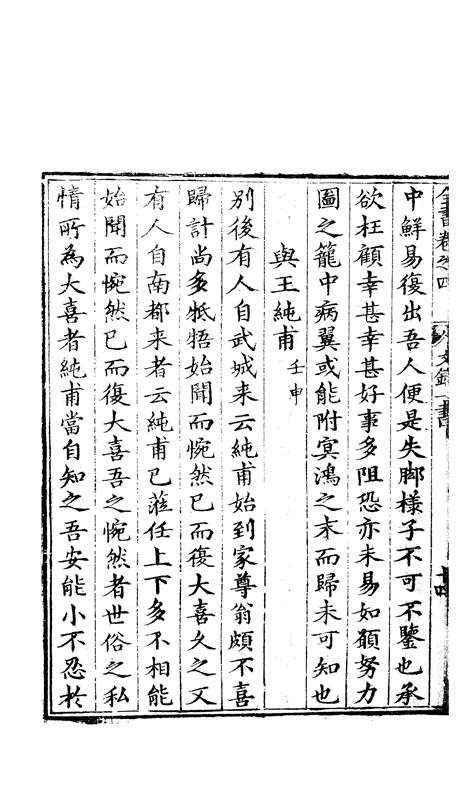 全書卷之四 文錄一書 十四
中鮮易復出吾人便是失脚樣子不可不鑒也承
欲枉顧幸甚幸甚好事多阻恐亦未易如願努力
圖之籠中病翼或能附冥鴻之末而歸未可知也
與王純甫 壬申
別後有人自武城來云純甫始到家尊翁頗不喜
歸計尚多牴牾始聞而惋然已而復大喜久之又
有人自南都來者云純甫已蒞任上下多不相能
始聞而惋然已而復大喜吾之惋然者世俗之私
情所為大喜者純甫當自知之吾安能小不忍於